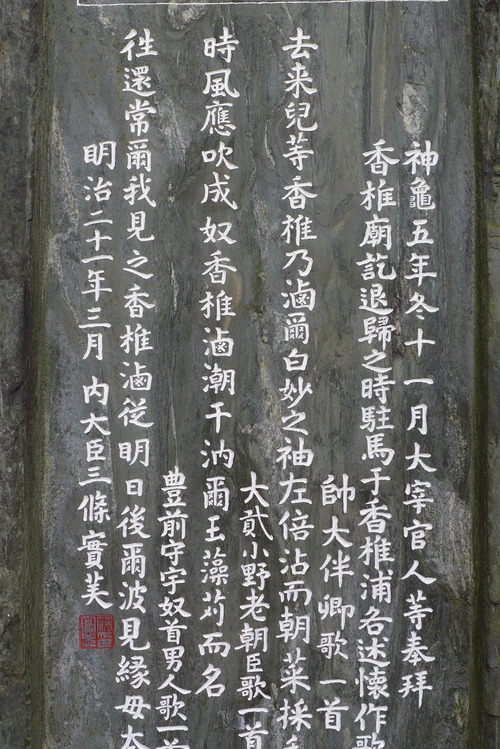 神龜五年冬十一月大宰官人等奉拜
香椎廟訖退歸之時駐馬于香椎浦各述懷作歌
帥大伴卿歌一首
去来兒等香椎乃滷爾白妙之袖左倍沾而朝菜採
大貳小野老朝臣歌一首
時風應吹成奴香椎滷潮干汭爾玉藻苅而名
豊前守宇奴首男人歌一首
徃還常爾我見之香椎滷從明日後爾波見緣毋奈
明治二十一年三月 内大臣三條實美